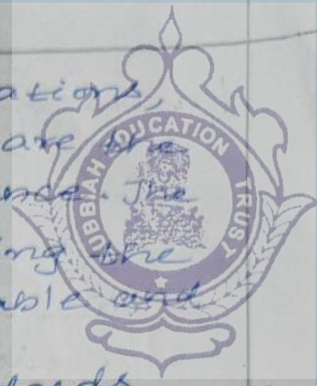 ations,
are the
ence. The
ing the
able and
EDUCATION TRUST